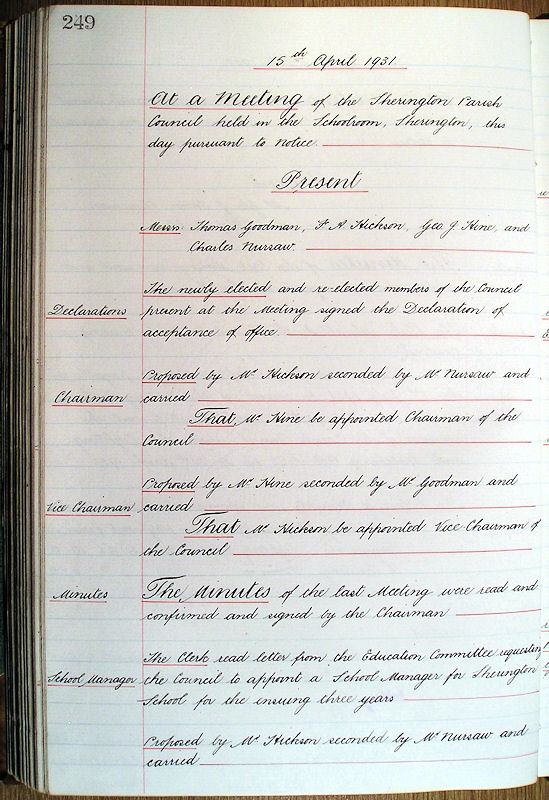 249
15th April 1931
At a Meeting of the Sherington Parish
Council held in the Schoolroom, Sherington, this
day pursuant to notice.
Present
Messrs. Thomas Goodman, F. A. Hickson, Geo. J. Hine, and
Charles Nursaw.
The newly elected and re-elected members of the Council
Declarations present at the Meeting signed the Declaration of
acceptance of office.
Proposed by Mr Hickson seconded by Mr Nursaw and
Chairman carried
That Mr Hine be appointed Chairman of the
Council
Proposed by Mr Hine seconded by Mr Goodman and
Vice Chairman carried
That Mr Hickson be appointed Vice-Chairman of
the Council
Minutes The Minutes of the last Meeting were read and
confirmed and signed by the Chairman
The Clerk read letter from the Education Committee requesting
School Manager the Council to appoint a School Manager for Sherington
School for the insuing three years
Proposed by Mr Hickson seconded by Mr Nursaw and
carried